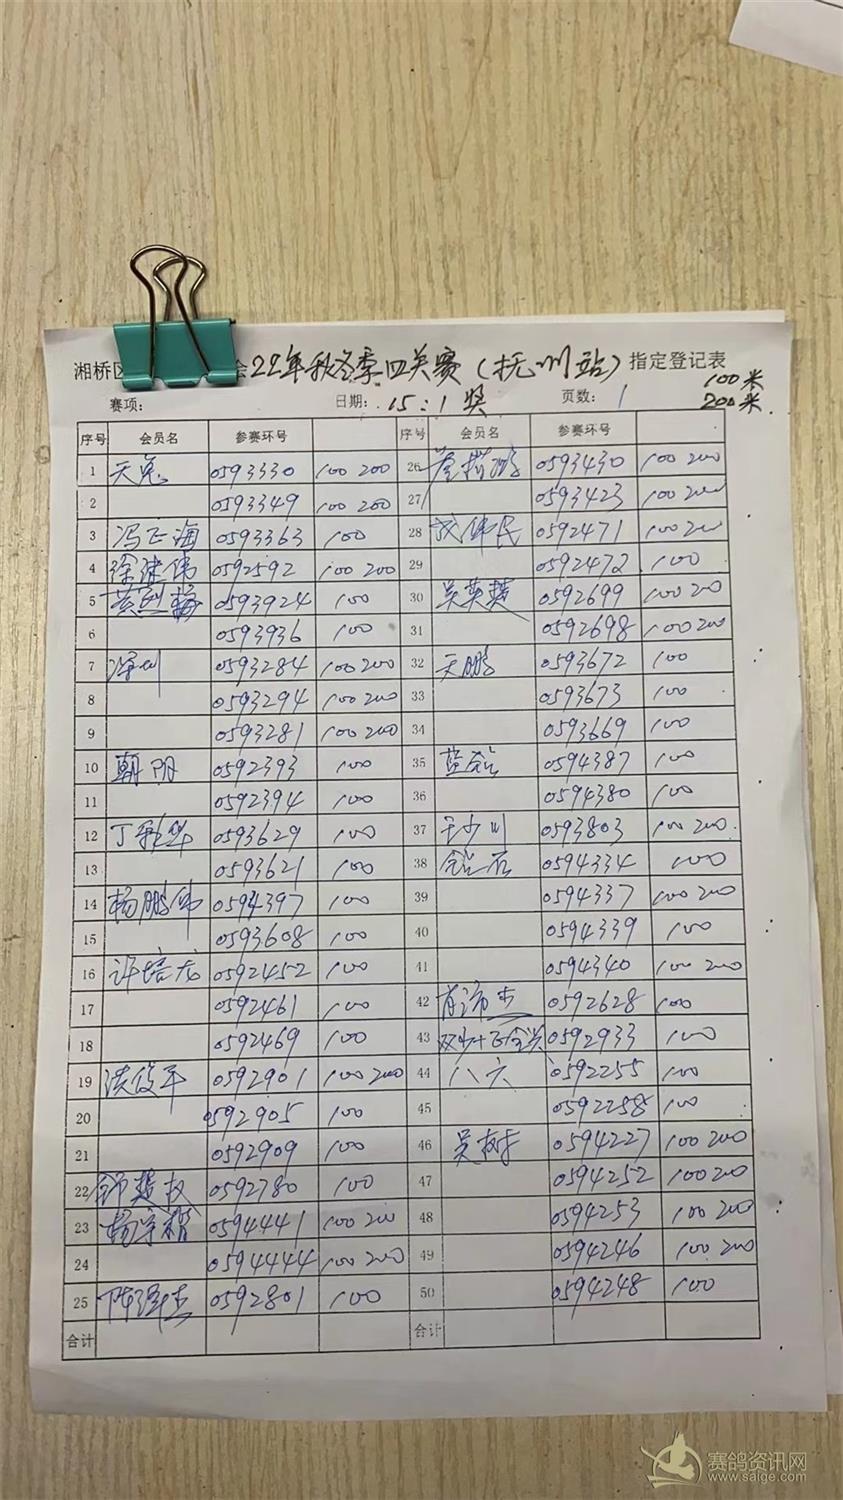 湘桥区 会22年秋冬季四关赛(抚州站)指定登记表
赛项: 日期: 15:1奖 页数: 1 100米
200米
序号 会员名 参赛环号 序号 会员名 参赛环号
1 天兔 0593330 100 200 26 0593430 100 200
2 0593349 100 200 27 0593423 100 200
3 冯正海 0593363 100 28 伟民 0592471 100 200
4 徐健伟 0592592 100 200 29 0592472 100
5 黄烈 0593924 100 30 吴英楚 0592699 100 200
6 0593936 100 31 0592698 100 200
7 0593284 100 200 32 天鹏 0593672 100
8 0593294 100 200 33 0593673 100
9 0593281 100 200 34 0593669 100
10 朝阳 0592393 100 35 蓝 0594387 100
11 0592394 100 36 0594380 100
12 丁 0593629 100 37 少川 0593803 100 200
13 0593621 100 38 钻石 0594334 100
14 杨鹏伟 0594397 100 39 0594337 100 200
15 0593608 100 40 0594339 100
16 许培龙 0592452 100 41 0594340 100 200
17 0592461 100 42 0592628 100
18 0592469 100 43 0592933 100
19 洪俊平 0592901 100 200 44 八六 0592255 100
20 0592905 100 45 0592258 100
21 0592909 100 46 吴树 0594227 100 200
22 楚权 0592780 100 47 0594252 100 200
23 杨宇楷 0594441 100 200 48 0594253 100 200
24 0594444 100 200 49 0594246 100 200
25 陈泽 0592801 100 50 0594248 100
合计 合计
赛鸽资讯网
www.saige.com